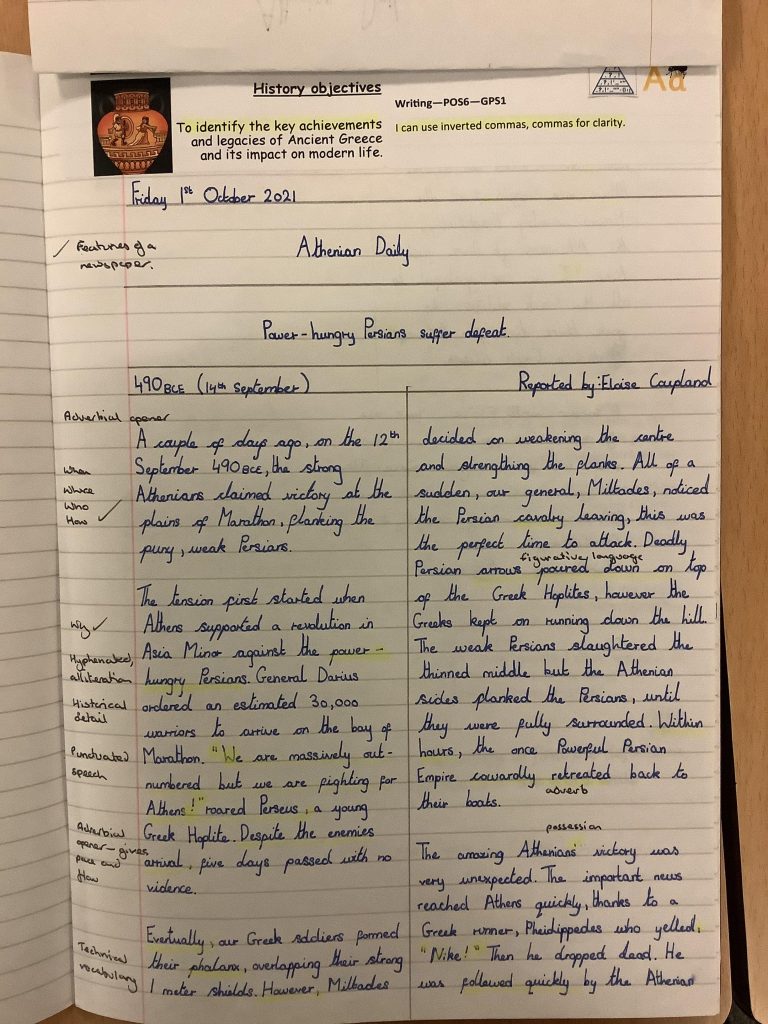 History objectives
To identify the key achievements
and legacies of Ancient Greece
and its impact on modern life.
Writing—POS6—GPS1
I can use inverted commas, commas for clarity.
Friday 1st October 2021
✓ Features of a
newspaper.
Athenian Daily
Power-hungry Persians suffer defeat.
490BCE (14th September)
Reported by: Eloise Coupland
Adverbial opener
When
Where
Who
How ✓
Why ✓
Hyphenated,
alliteration
Historical
detail
Punctuated
speech
Adverbial
opener - gives
pace and
flow
Technical
vocabulary
A couple of days ago, on the 12th
September 490BCE, the strong
Athenians claimed victory at the
plains of Marathon, flanking the
puny, weak Persians.
The tension first started when
Athens supported a revolution in
Asia Minor against the power-
hungry Persians. General Darius
ordered an estimated 30,000
warriors to arrive on the bay of
Marathon. "We are massively out-
numbered but we are fighting for
Athens!" roared Perseus, a young
Greek Hoplite. Despite the enemies
arrival, five days passed with no
vidence.
Eventually, our Greek soldiers formed
their phalanx, overlapping their strong
1 meter shields. However, Miltades
decided on weakening the centre
and strengthing the flanks. All of a
sudden, our general, Miltades, noticed
the Persian cavalry leaving, this was
the perfect time to attack. Deadly
figurative language
Persian arrows poured down on top
of the Greek Hoplites, however the
Greeks kept on running down the hill.
The weak Persians slaughtered the
thinned middle but the Athenian
sides flanked the Persians, until
they were fully surrounded. Within
hours, the once Powerful Persian
Empire cowardly retreated back to
adverb
their boats.
possession
The amazing Athenians' victory was
very unexpected. The important news
reached Athens quickly, thanks to a
Greek runner, Pheidippedes who yelled,
"Nike!" Then he dropped dead. He
was followed quickly by the Athenian